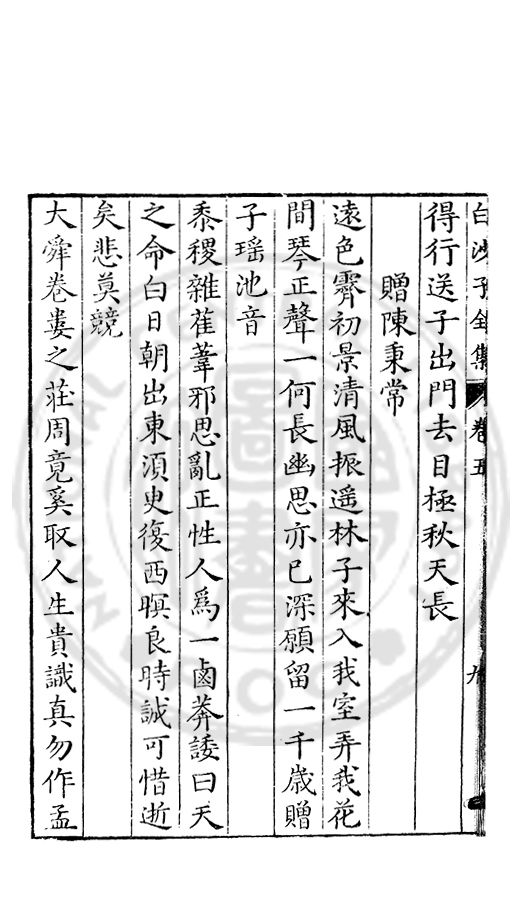 白沙子全集 卷五 九
得行送子出門去目極秋天長
贈陳秉常
遠色霽初景清風振遥林子來入我室弄我花
間琴正聲一何長幽思亦已深願留一千歳贈
子瑶池音
黍稷雜萑葦邪思亂正性人爲一鹵莾諉曰天
之命白日朝出東湏㬰復西暝良時誠可惜逝
矣悲莫競
大舜卷婁之荘周竟奚取人生貴識真勿作孟